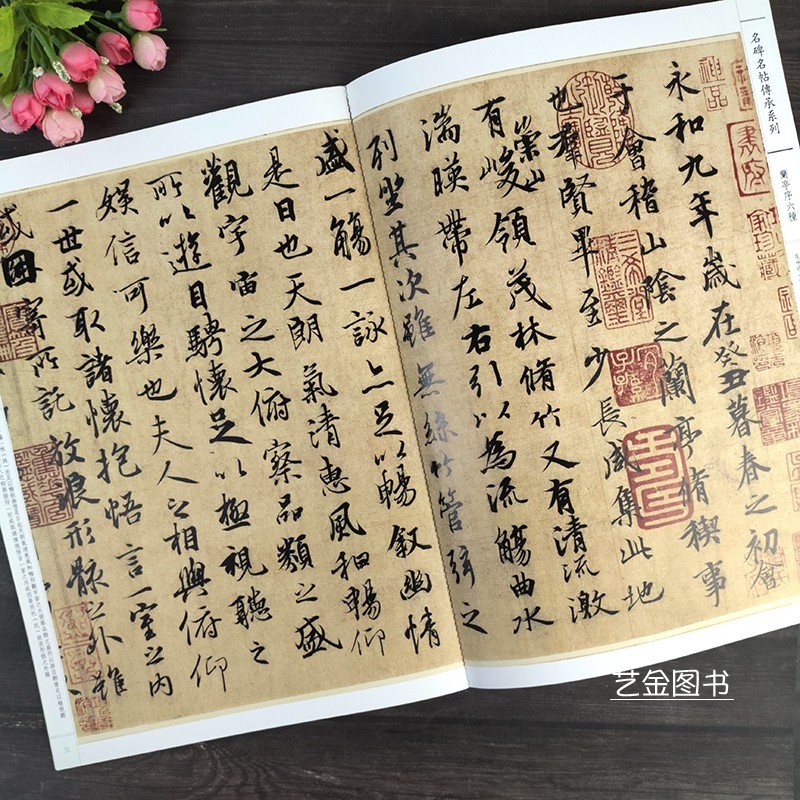 名碑名帖傳承系列
蘭亭序六種
神品
永和九年歲在癸丑暮春之初會
于會稽山陰之蘭亭脩稧事
也羣賢畢至少長咸集此地
有崇山峻領茂林脩竹又有清流激
湍暎帶左右引以為流觴曲水
列坐其次雖無絲竹管弦之
盛一觴一詠亦足以暢敘幽情
是日也天朗氣清惠風和暢仰
觀宇宙之大俯察品類之盛
所以遊目騁懷足以極視聽之
娛信可樂也夫人之相與俯仰
一世或取諸懷抱悟言一室之內
或因寄所託放浪形骸之外雖
艺金图书